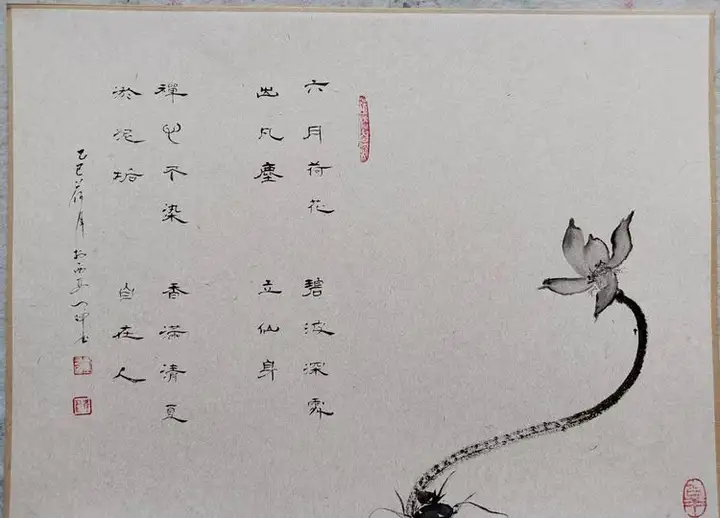 六月荷花 碧波深处
出凡尘 立仙身
禅心不染 香满清夏
淤泥垢 自在人
乙巳荷月於西安